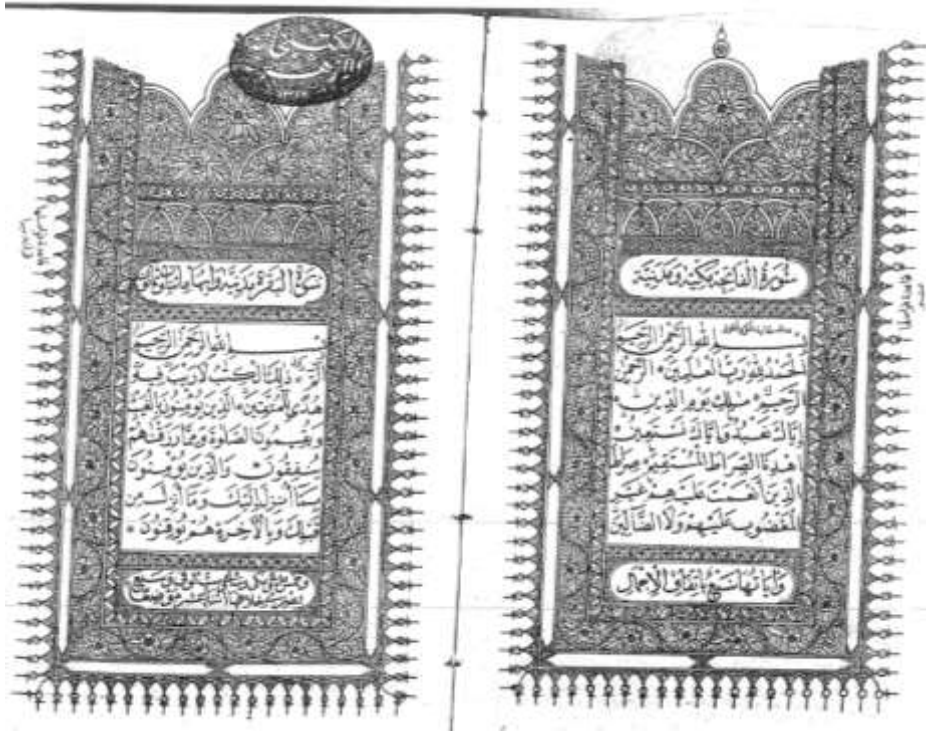 سورة الفاتحة مكية ومدنية
بسم الله الرحمن الرحيم
الحمد لله رب العلمين الرحمن
الرحيم ملك يوم الدين
إياك نعبد وإياك نستعين
اهدنا الصراط المستقيم صراط
الذين أنعمت عليهم غير
المغضوب عليهم ولا الضالين
وآياتها سبع باتفاق الإجمال
سورة البقرة مدنية
بسم الله الرحمن الرحيم
الم ذلك الكتب لا ريب فيه
هدى للمتقين الذين يؤمنون بالغيب
ويقيمون الصلوة ومما رزقنهم
ينفقون والذين يؤمنون
بما أنزل إليك وما أنزل من
قبلك وبالآخرة هم يوقنون